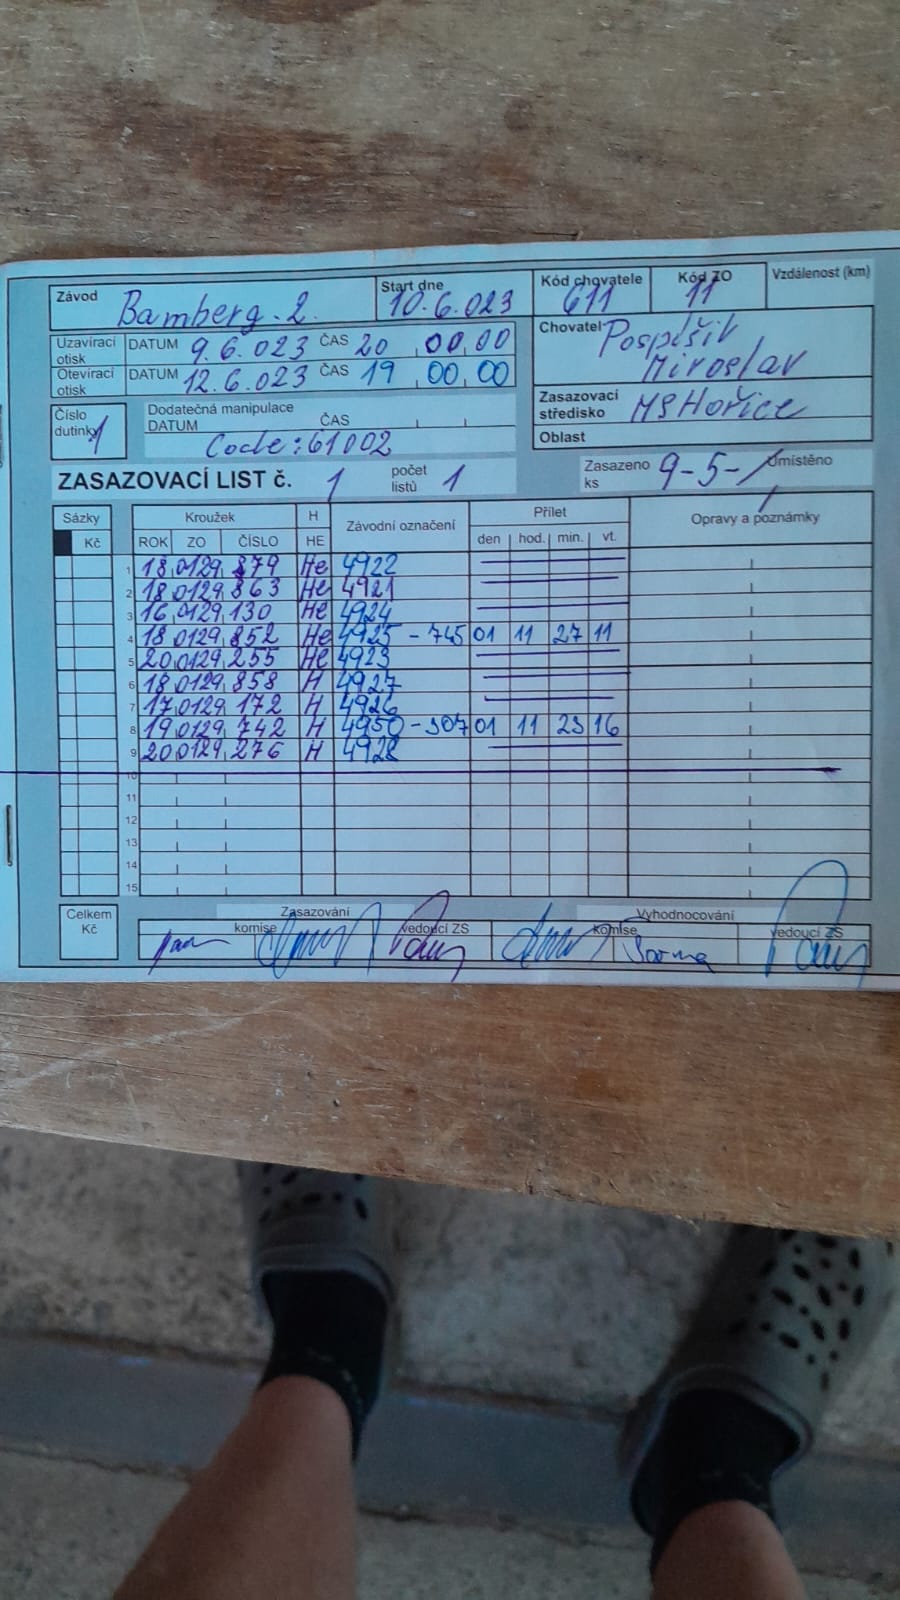 Závod Bamberg. 2. Start dne 10.6.023 Kód chovatele 611 Kód ZO 11 Vzdálenost (km)
Uzavírací otisk DATUM 9.6.023 ČAS 20 00,00
Otevírací otisk DATUM 12.6.023 ČAS 19 00,00
Chovatel Pospíšil Miroslav
Zasazovací středisko MS Hořice
Oblast
Číslo dutinky 1
Dodatečná manipulace
DATUM ČAS
Code: 61002
ZASAZOVACÍ LIST č. 1 počet listů 1 Zasazeno ks 9-5-1 Umístěno
Sázky Kroužek H Závodní označení Přílet Opravy a poznámky
Kč ROK ZO ČÍSLO HE den hod. min. vt.
1 18 0129 879 He 4922
2 18 0129 863 He 4921
3 16 0129 130 He 4924
4 18 0129 852 He 4925 - 745 01 11 27 11
5 20 0129 255 He 4923
6 18 0129 858 H 4927
7 17 0129 172 H 4926
8 19 0129 742 H 4950 - 307 01 11 23 16
9 20 0129 276 H 4928
10
11
12
13
14
15
Celkem Kč
Zasazování Vyhodnocování
komise vedoucí ZS komise vedoucí ZS